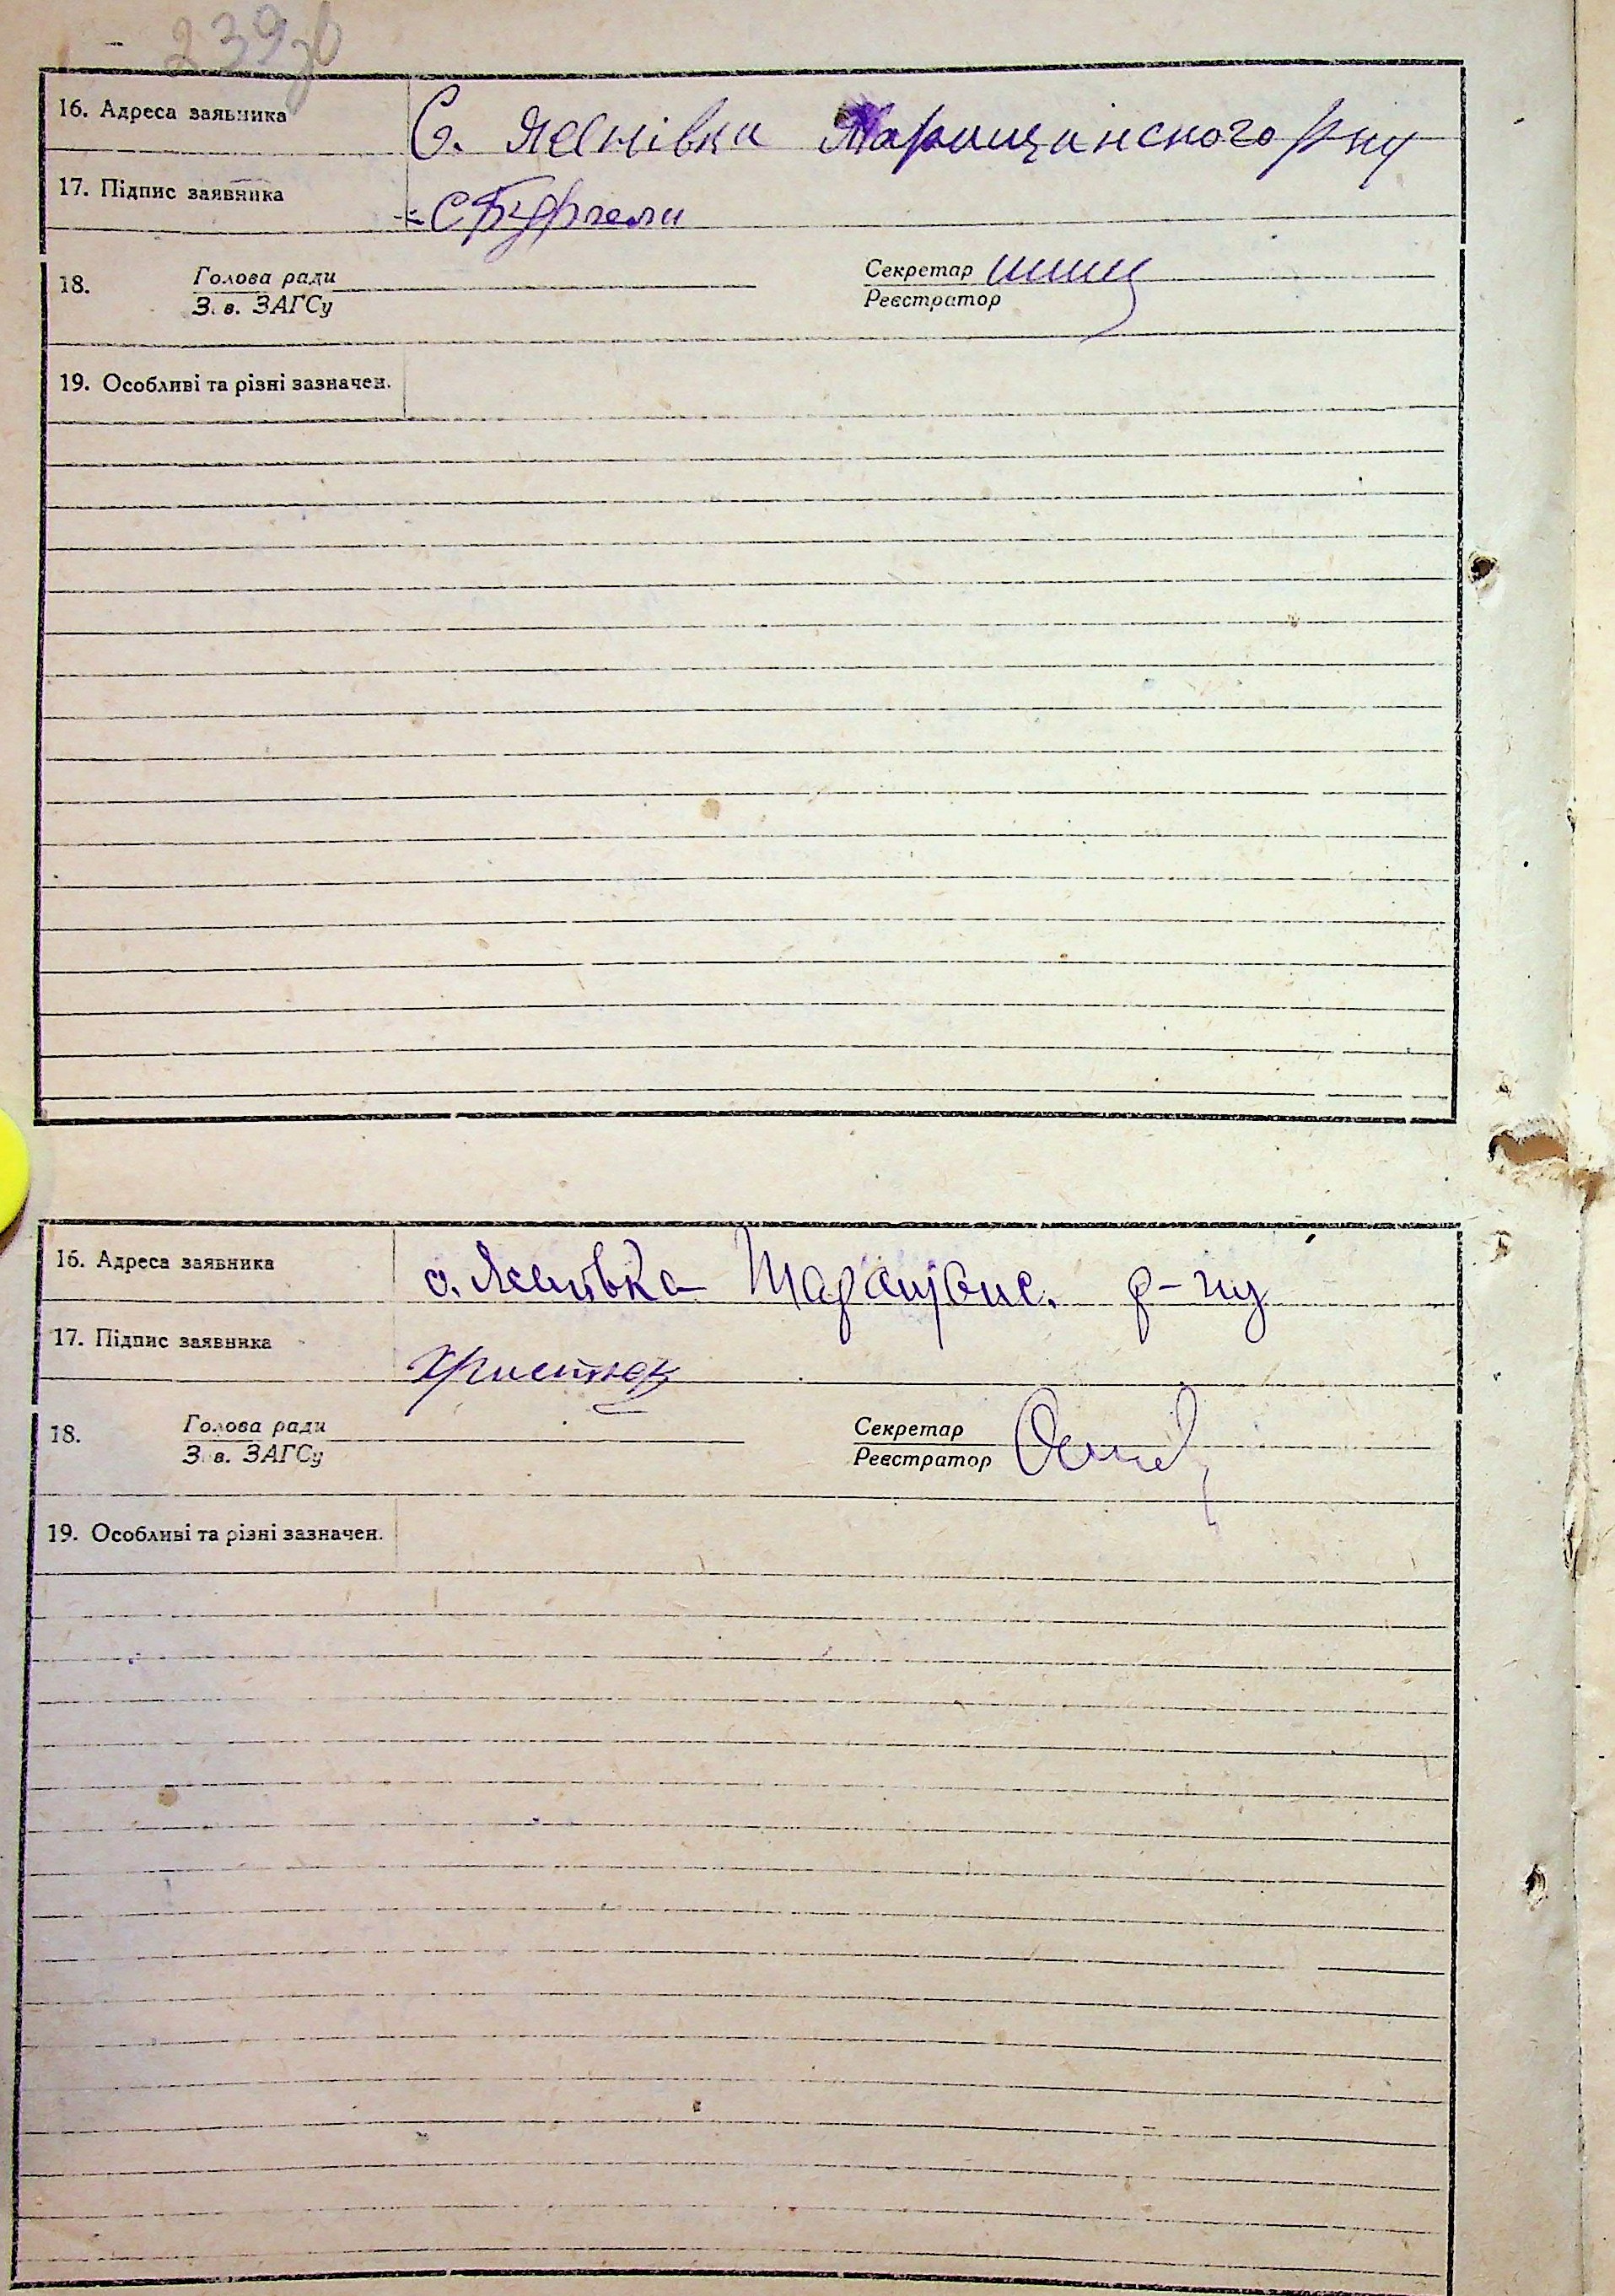 239зв
16. Адреса заявника С. Ясенівка Таращанского р-ну
17. Підпис заявника
18. Голова ради Секретар
З. в. ЗАГСу Реєстратор
19. Особливі та різні зазначен.
16. Адреса заявника с. Ясенівка Таращанс. р-ну
17. Підпис заявника Христюк
18. Голова ради Секретар
З. в. ЗАГСу Реєстратор
19. Особливі та різні зазначен.